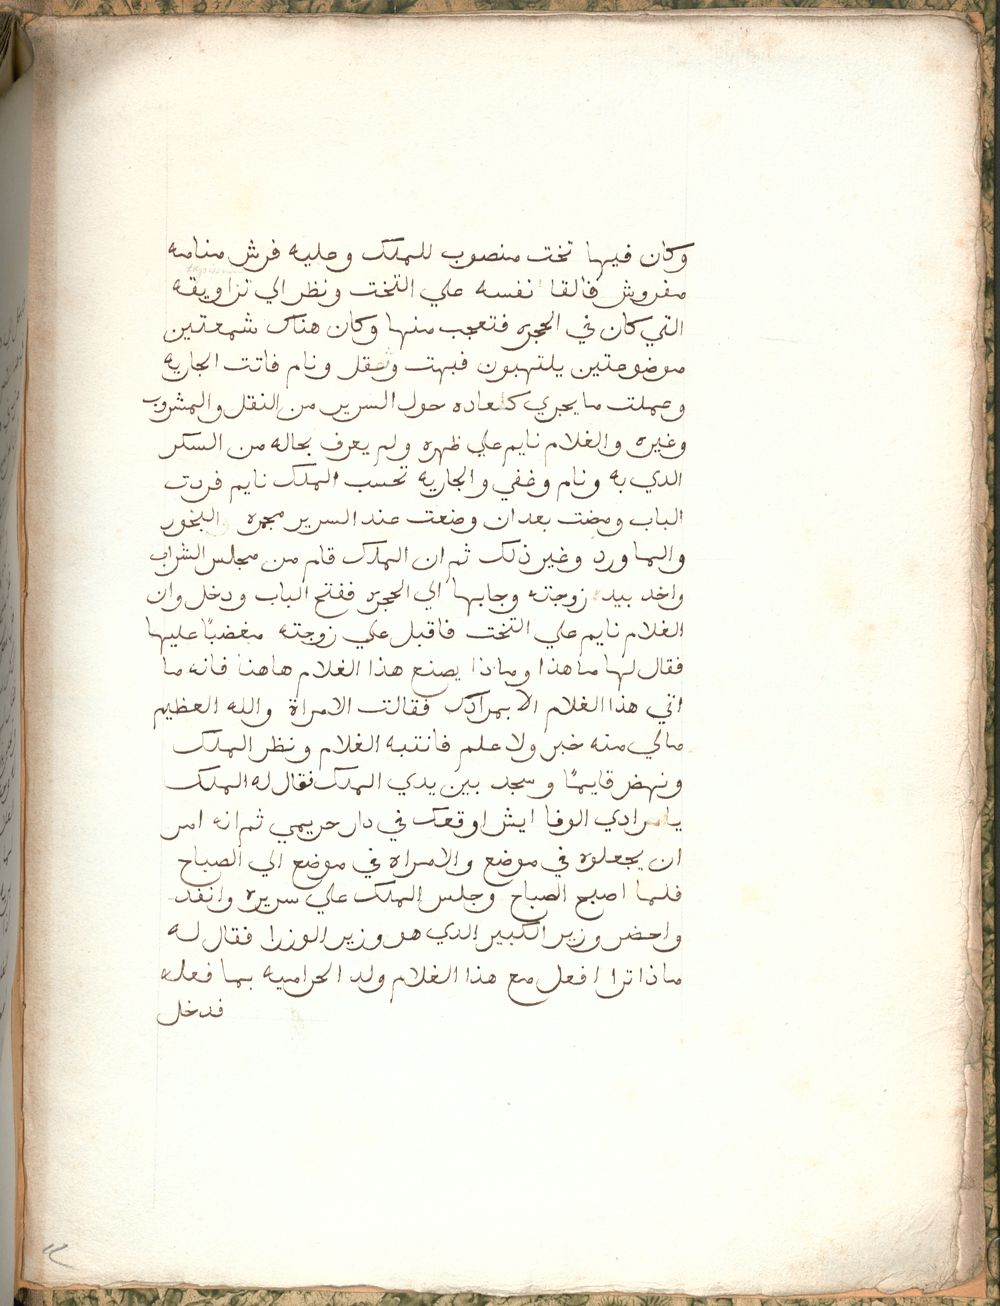 وكان فيها تخت منصوب للملك وعليه فرش منامه
مفروش فالقا نفسه علي التخت ونظر الي تزاويقه
التي كان في الحجره فتعجب منها وكان هناك شمعتين
موضوعتين يلتهبون فبهت وعقل ونام فاتت الجاريه
وعملت ما يجري كلعاده حول السرير من النقل والمشروب
وغيره والغلام نايم علي ظهره ولم يعرف بحاله من السكر
الدي به ونام وغفي والجاريه تحسب الملك نايم فردت
الباب ومضت بعد ان وضعت عند السرير مجمره البخور
والماورد وغير ذلك ثم ان الملك قام من مجلس الشراب
واخد بيد زوجته وجابها الي الحجره ففتح الباب ودخل وان
الغلام نايم علي التخت فاقبل علي زوجته مغضبًا عليها
فقال لها ما هذا وماذا يصنع هذا الغلام هاهنا فانه ما
اتي هذا الغلام الا بمرادك فقالت الامراة والله العظيم
مالي منه خبر ولا علم فانتبه الغلام ونظر الملك
ونهض قايمًا وسجد بين يدي الملك فقال له الملك
يا مرادي الوفا ايش اوقعك في دار حريمي ثم انه امر
ان يجعلوه في موضع والامراه في موضع الي الصباح
فلما اصبح الصباح وجلس الملك علي سريره وانفد
واحضر وزير الكبير الذي هو وزير الوزرا فقال له
ماذا ترا افعل مع هذا الغلام ولد الحراميه بما فعله
فدخل